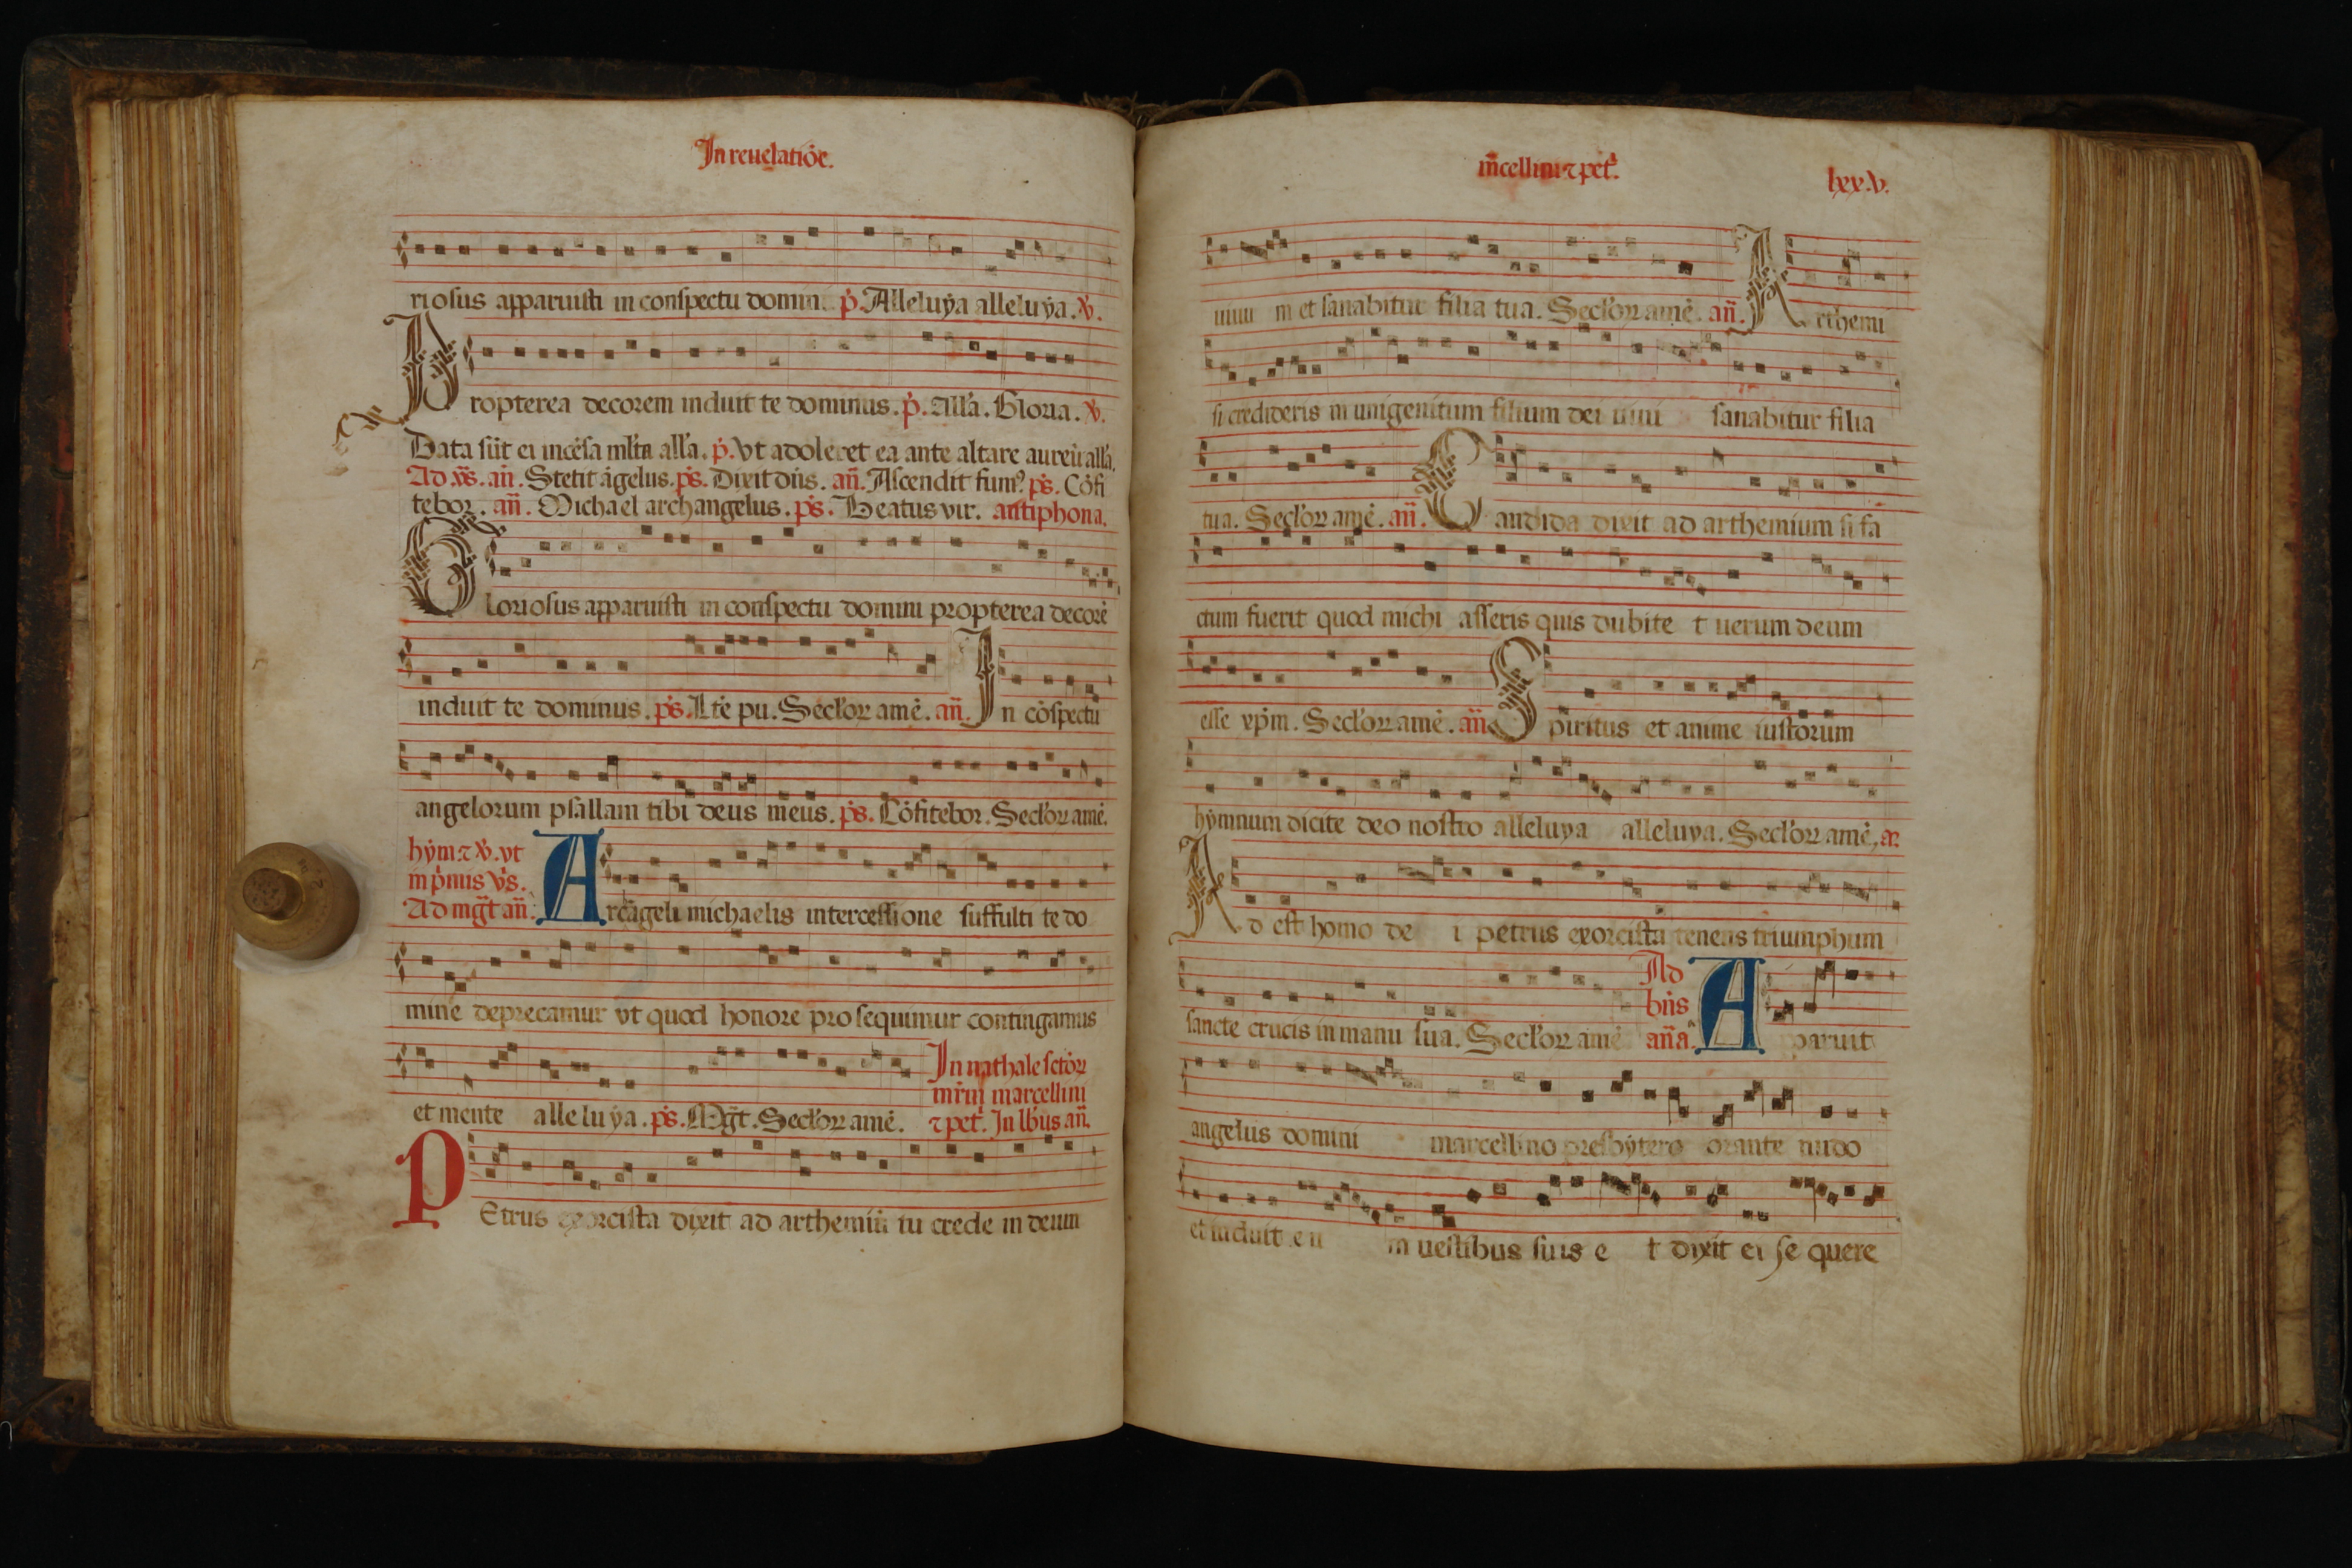 In reuelatiōe.
riosus apparuisti in conspectu domini. p̄. Alleluẏa alleluẏa. v̄.
Propterea decorem induit te dominus. p̄. All'a. Gloria. v̄.
Data sūt ei incēsa ml'ta all'a. p̄. Vt adoleret ea ante altare aureū all'a.
Ad v̄s. an̄. Stetit āgelus. p̄s. Dixit dn̄s. an̄. Ascendit fumꝰ. p̄s. Cōfi
tebor. an̄. Michael archangelus. p̄s. Beatus vir. antiphona.
Gloriosus apparuisti in conspectu domini propterea decorē
induit te dominus. p̄s. Lr̄e pu. Secl'oꝝ amē. an̄. In cōspectu
angelorum psallam tibi deus meus. p̄s. Cōfitebor. Secl'oꝝ amē.
hẏm ⁊ v̄. vt
in p̄mis v̄s.
Ad mḡt an̄.
Arcāgeli michaelis intercessione suffulti te do
mine deprecamur vt quod honore prosequimur contingamus
et mente alleluẏa. p̄s. Mḡt. Secl'oꝝ amē.
In nathale sctōꝝ
mr̄ıꝝ marcellini
⁊ pet'. In lb'us an̄.
PEtrus exorcista dixit ad arthemiū tu crede in deum
m̄cellini ⁊ pet'.
lxx.v.
uiuu m et sanabitur filia tua. Secl'oꝝ amē. an̄. Arthemi
si credideris in unigenitum filium dei uiui sanabitur filia
tua. Secl'oꝝ amē. an̄. Candida dixit ad arthemium si fa
ctum fuerit quod michi asseris quis dubite t uerum deum
esse xp̄m. Secl'oꝝ amē. an̄ Spiritus et anime iustorum
hẏmnum dicite deo nostro alleluya alleluya. Secl'oꝝ amē, a.
Ad est homo de i petrus exorcista tenens triumphum
sancte crucis in manu sua. Secl'oꝝ amē
Ad
bn̄s
an̄a.
Apparuit
angelus domini marcellino presbytero orante nudo
et induit eu m uestibus suis e t dixit ei se quere